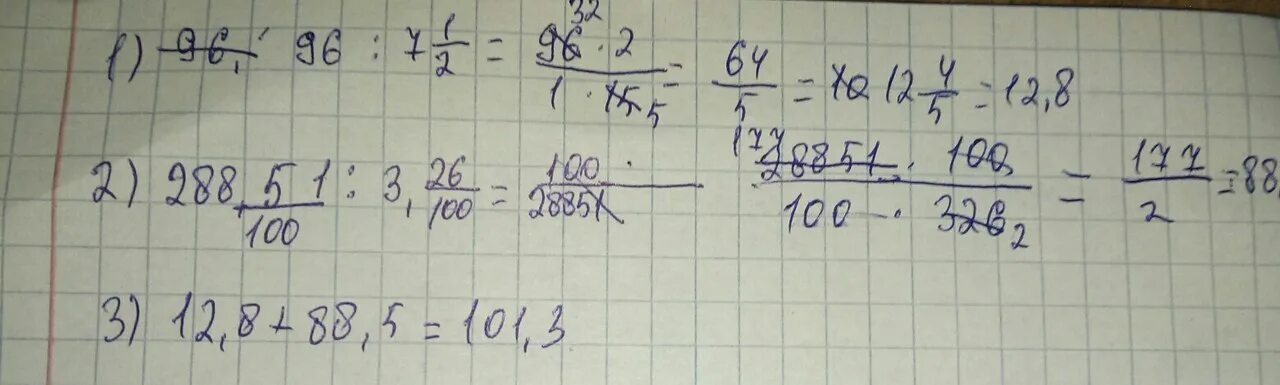 1) 96, 96 : 7 1/2 = 96 32 · 2 / 1 · 15 5 = 64/5 = 10 12 4/5 = 12,8
2) 288 51/100 : 3, 26/100 = 100 · / 28851 177 28851 · 100 / 100 · 326 2 = 177/2 = 88
3) 12,8 + 88,5 = 101,3